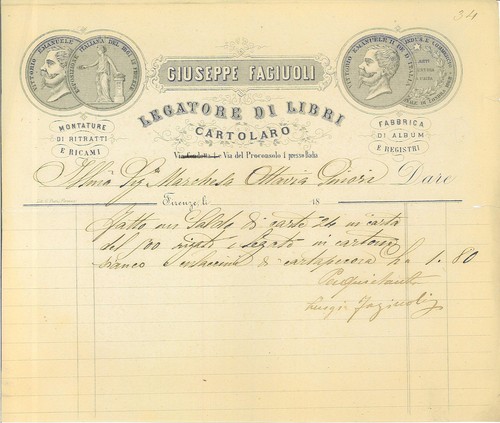 34
VITTORIO EMANUELE
ESPOSIZIONE ITALIANA DEL 1861 IN FIRENZE
VITTORIO EMANUELE II RE D'ITALIA
GIUSEPPE FAGIUOLI
LEGATORE DI LIBRI
CARTOLARO
MONTATURE
DI RITRATTI
E RICAMI
FABBRICA
DI ALBUM
E REGISTRI
Via del Proconsolo 1 presso Badia
Illmo Sigr Marchese Ottavia Ginori Dare
Firenze, li 18
Fatto un Saldo di carte 24 in carta
del 100 rigato e legato in cartone
bianco di cartapecora 1. 80
Per Quietanza
Luigi Fagiuoli